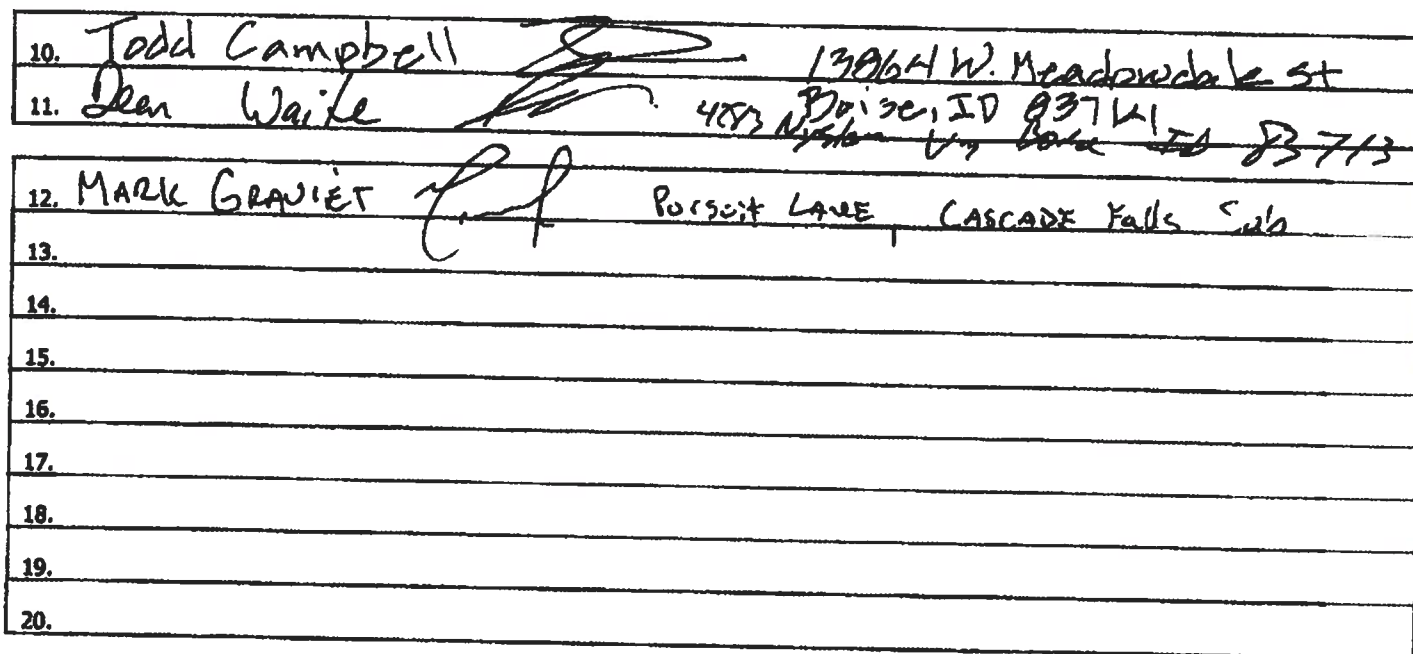 10. Todd Campbell 13864 W. Meadowdale st
Boise, ID
11. Dean Waite Boise ID 83713
12. MARK GRAVIET Pursuit LANE, CASCADE Falls Sub
13.
14.
15.
16.
17.
18.
19.
20.